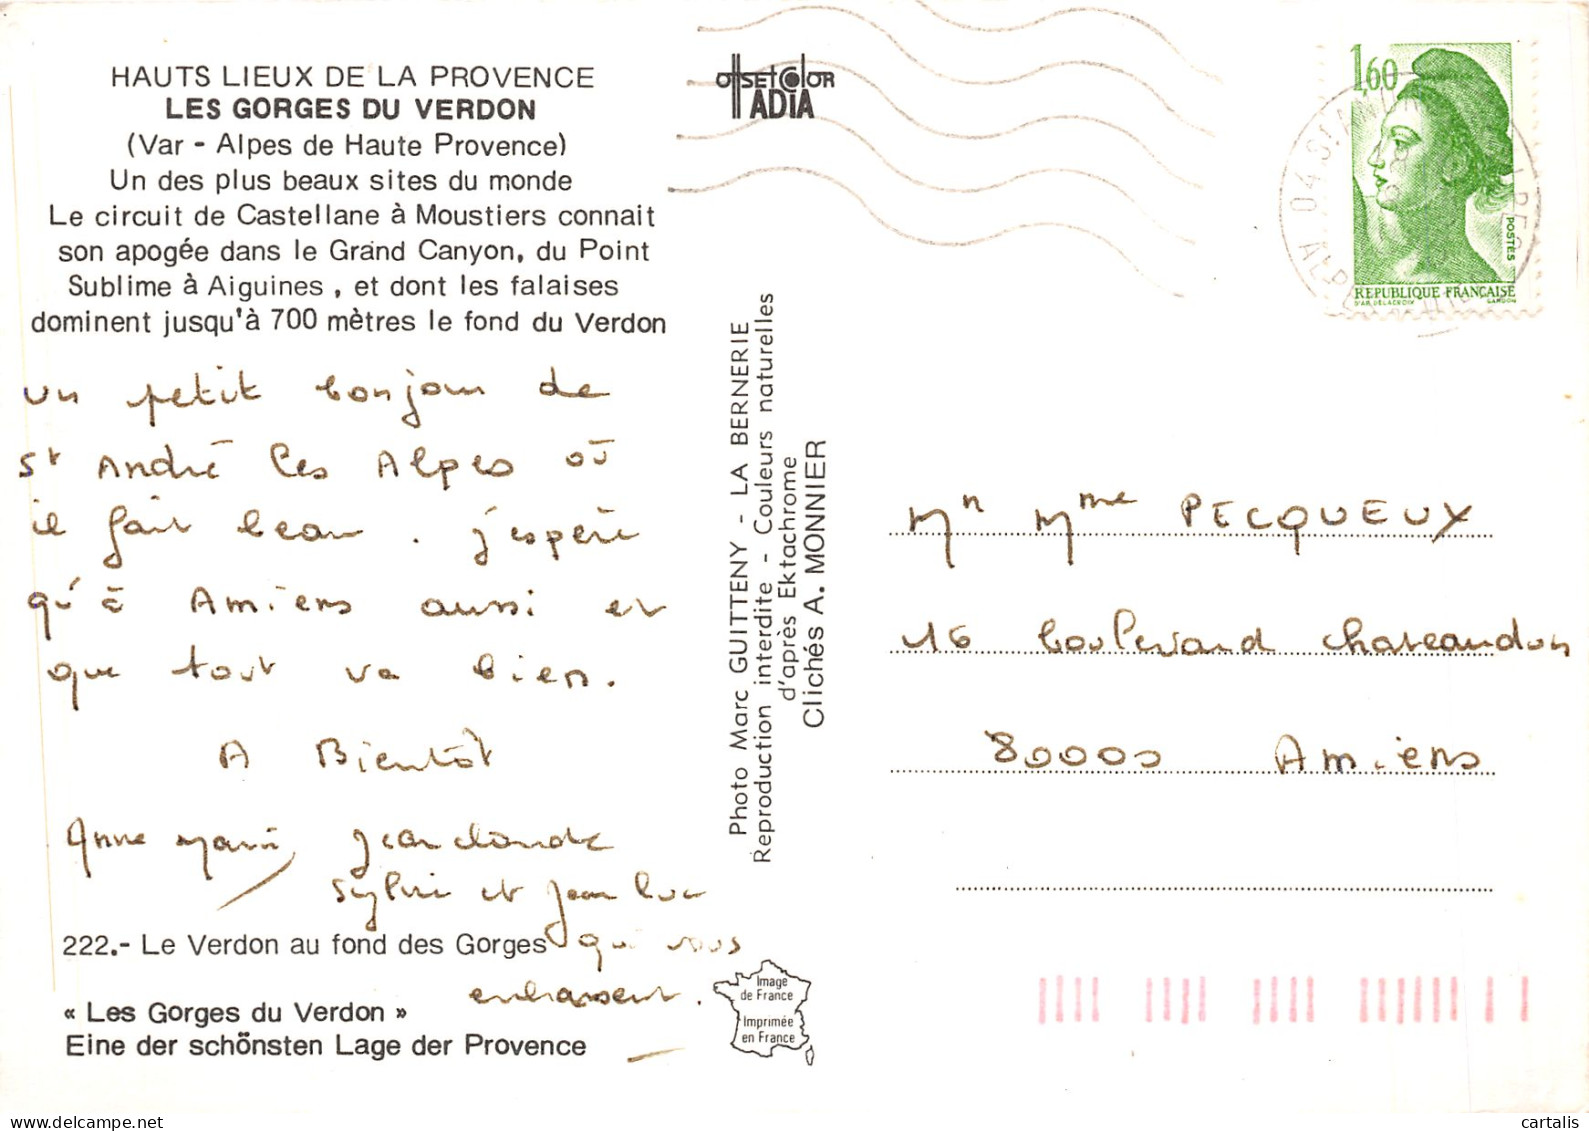 HAUTS LIEUX DE LA PROVENCE
LES GORGES DU VERDON
(Var - Alpes de Haute Provence)
Un des plus beaux sites du monde
Le circuit de Castellane à Moustiers connait
son apogée dans le Grand Canyon, du Point
Sublime à Aiguines , et dont les falaises
dominent jusqu'à 700 mètres le fond du Verdon
un petit bonjour de
St André les Alpes où
il fait beau . j'espère
qu'à Amiens aussi et
que tout va bien.
A Bientôt
Anne Marie, Jean claude
Sylvie et Jean Luc
qui vous
embrassent.
222.- Le Verdon au fond des Gorges
« Les Gorges du Verdon »
Eine der schönsten Lage der Provence
OffsetColor
ADIA
Photo Marc GUITTENY - LA BERNERIE
Reproduction interdite - Couleurs naturelles
d'après Ektachrome
Clichés A. MONNIER
Image
de France
Imprimée
en France
1,60
POSTES
REPUBLIQUE FRANÇAISE
D'AP. DELACROIX GANDON
04 St AN
Mr Mme PECQUEUX
16 boulevard chateaudun
80000 Amiens
cartalis